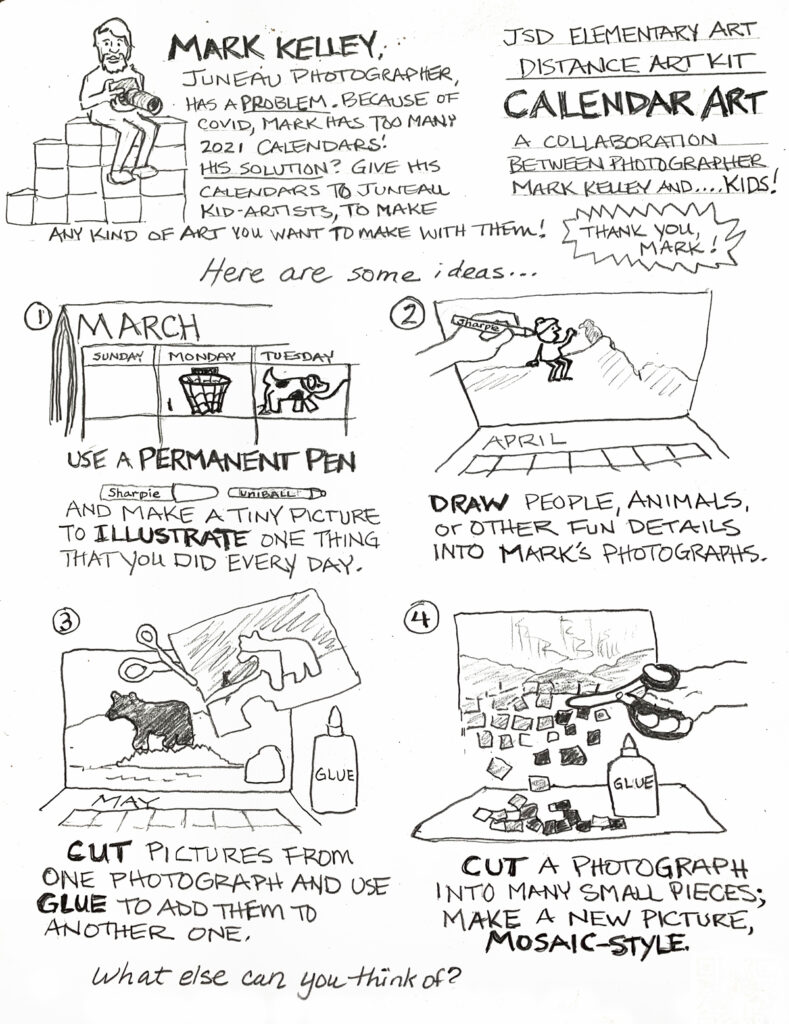 MARK KELLEY,
JUNEAU PHOTOGRAPHER,
HAS A PROBLEM. BECAUSE OF
COVID, MARK HAS TOO MANY
2021 CALENDARS!
HIS SOLUTION? GIVE HIS
CALENDARS TO JUNEAU
KID-ARTISTS, TO MAKE
ANY KIND OF ART YOU WANT TO MAKE WITH THEM!
JSD ELEMENTARY ART
DISTANCE ART KIT
CALENDAR ART
A COLLABORATION
BETWEEN PHOTOGRAPHER
MARK KELLEY AND....KIDS!
THANK YOU,
MARK!
Here are some ideas...
1
MARCH
SUNDAY MONDAY TUESDAY
USE A PERMANENT PEN
Sharpie UNIBALL
AND MAKE A TINY PICTURE
TO ILLUSTRATE ONE THING
THAT YOU DID EVERY DAY.
2
Sharpie
APRIL
DRAW PEOPLE, ANIMALS,
or OTHER FUN DETAILS
INTO MARK'S PHOTOGRAPHS.
3
GLUE
MAY
CUT PICTURES FROM
ONE PHOTOGRAPH AND USE
GLUE TO ADD THEM TO
ANOTHER ONE.
4
GLUE
CUT A PHOTOGRAPH
INTO MANY SMALL PIECES;
MAKE A NEW PICTURE,
MOSAIC-STYLE.
What else can you think of?